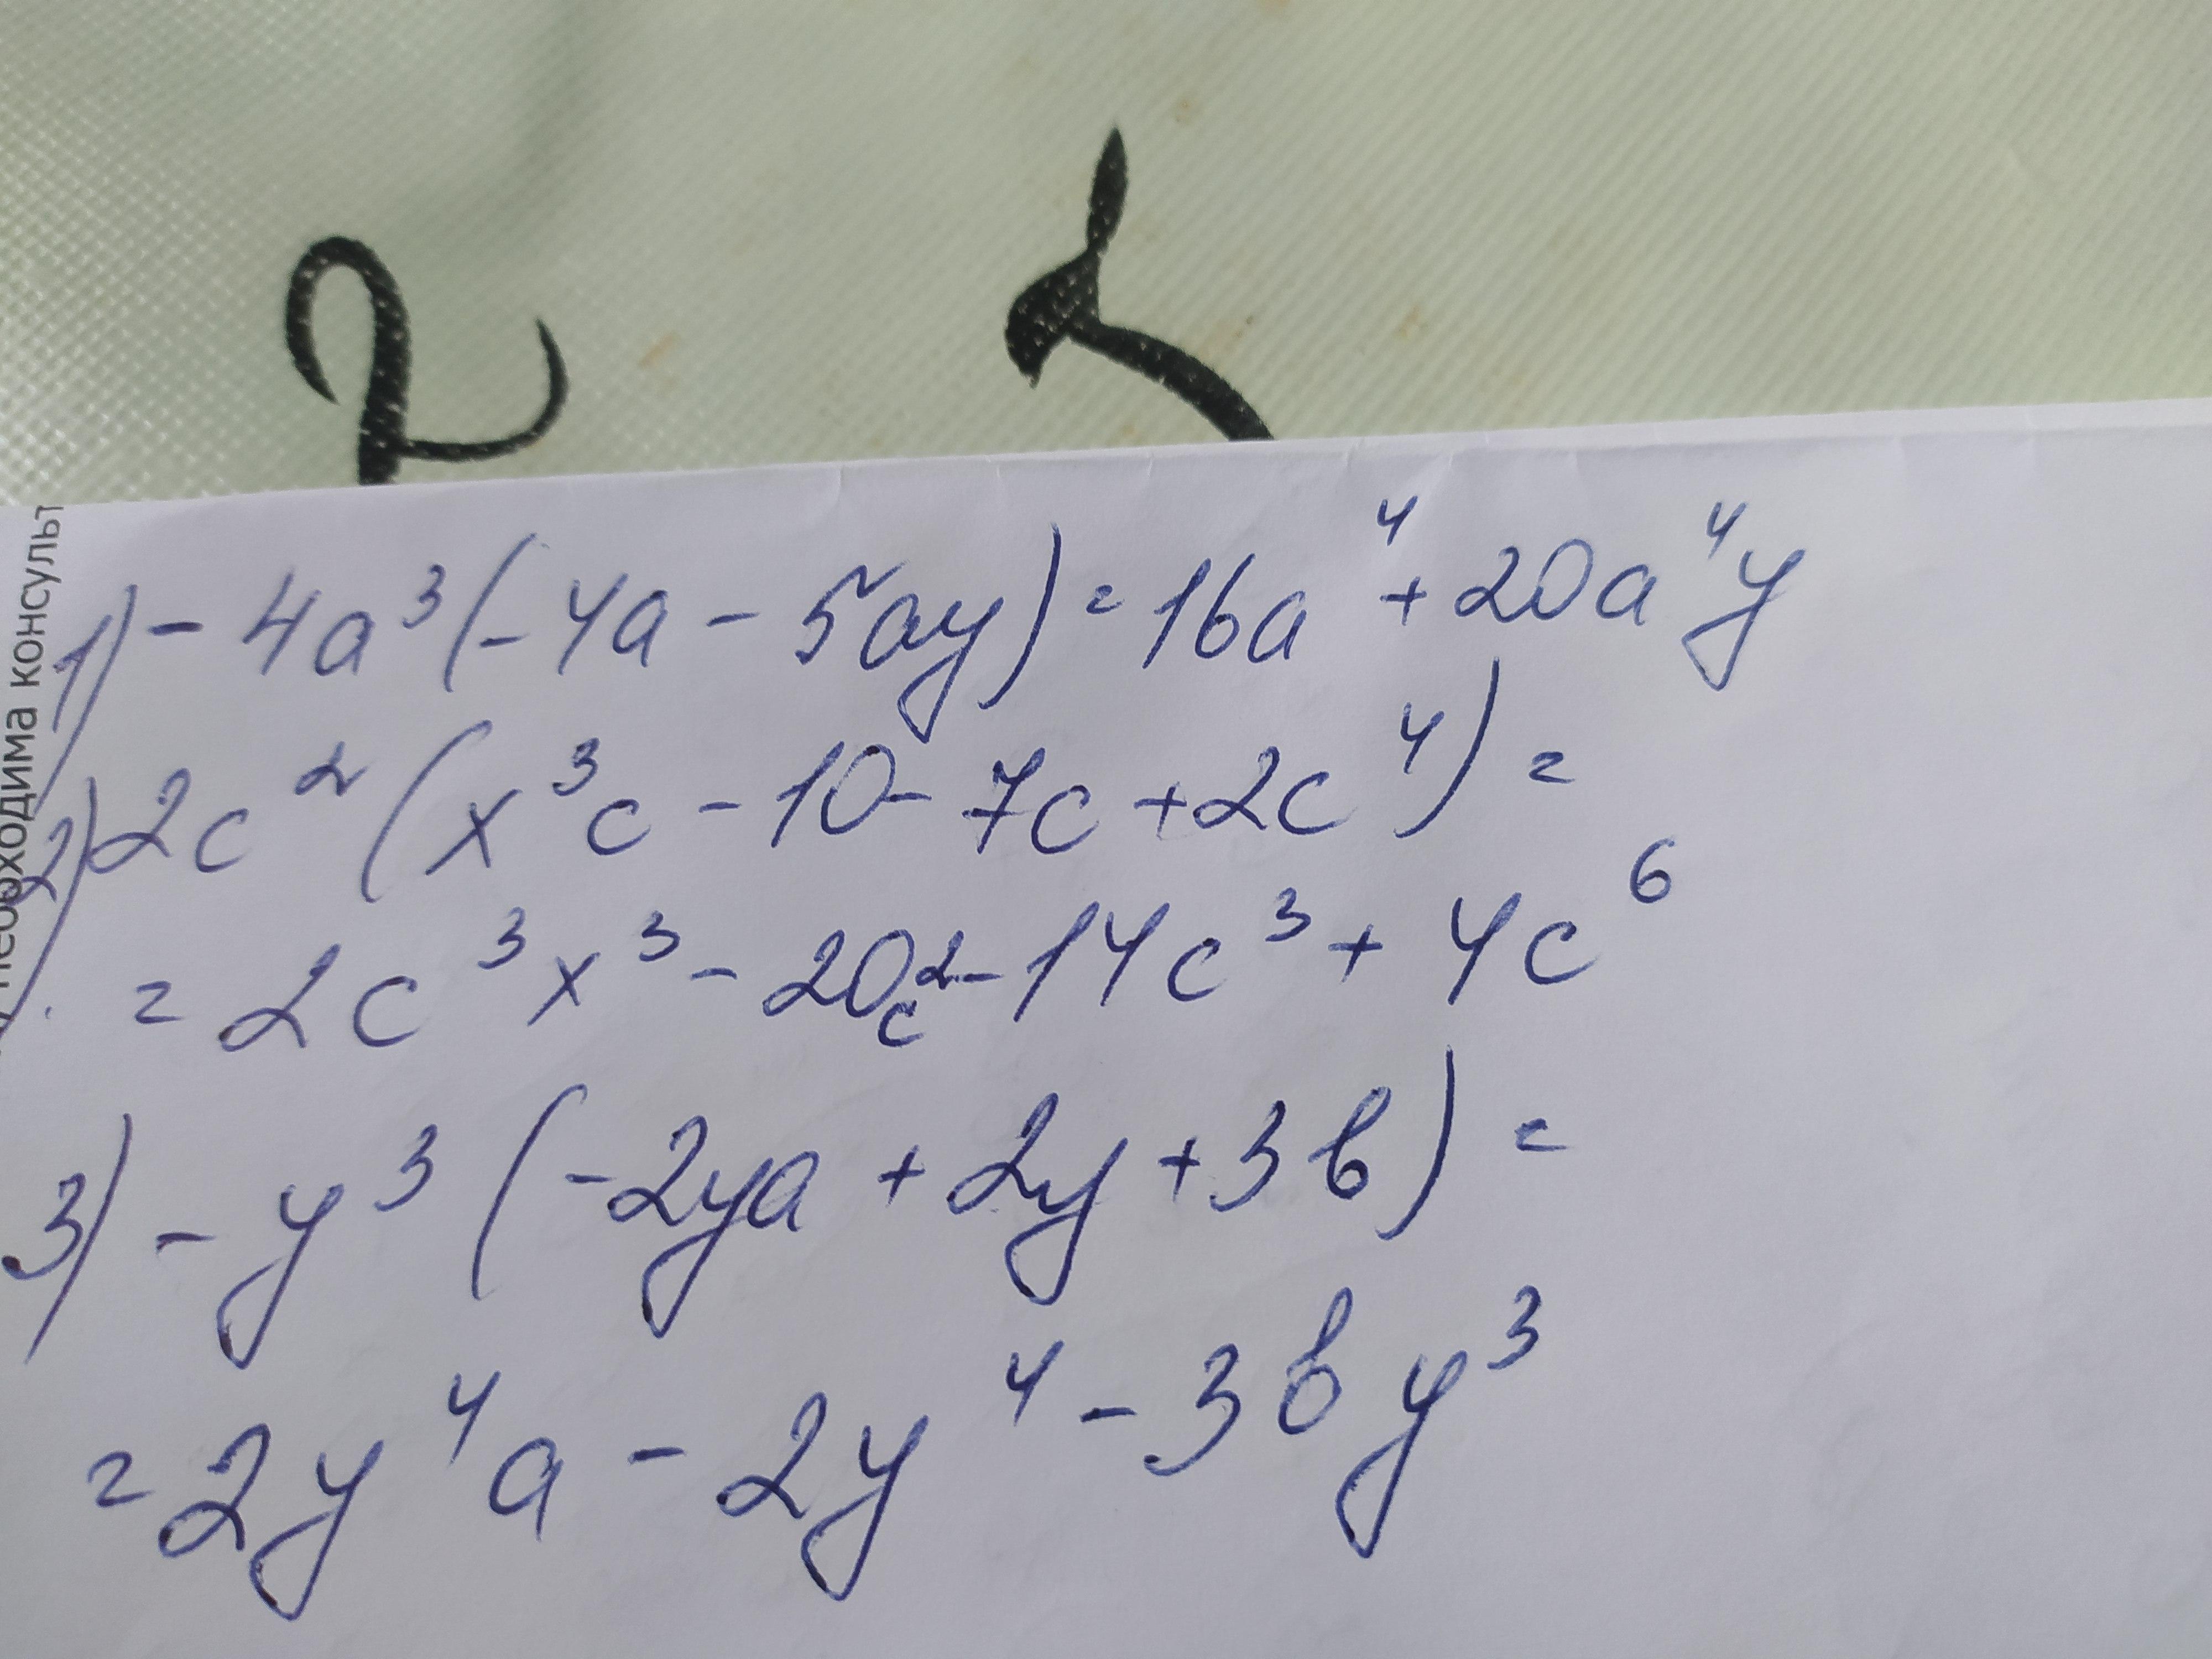 необходима консульт
1) - 4a³(- 4a - 5ay) = 16a⁴ + 20a⁴y
2) 2c² (x³c - 10 - 7c + 2c⁴) =
= 2c³x³ - 20c² - 14c³ + 4c⁶
3) - y³ (- 2ya + 2y + 3b) =
= 2y⁴a - 2y⁴ - 3by³